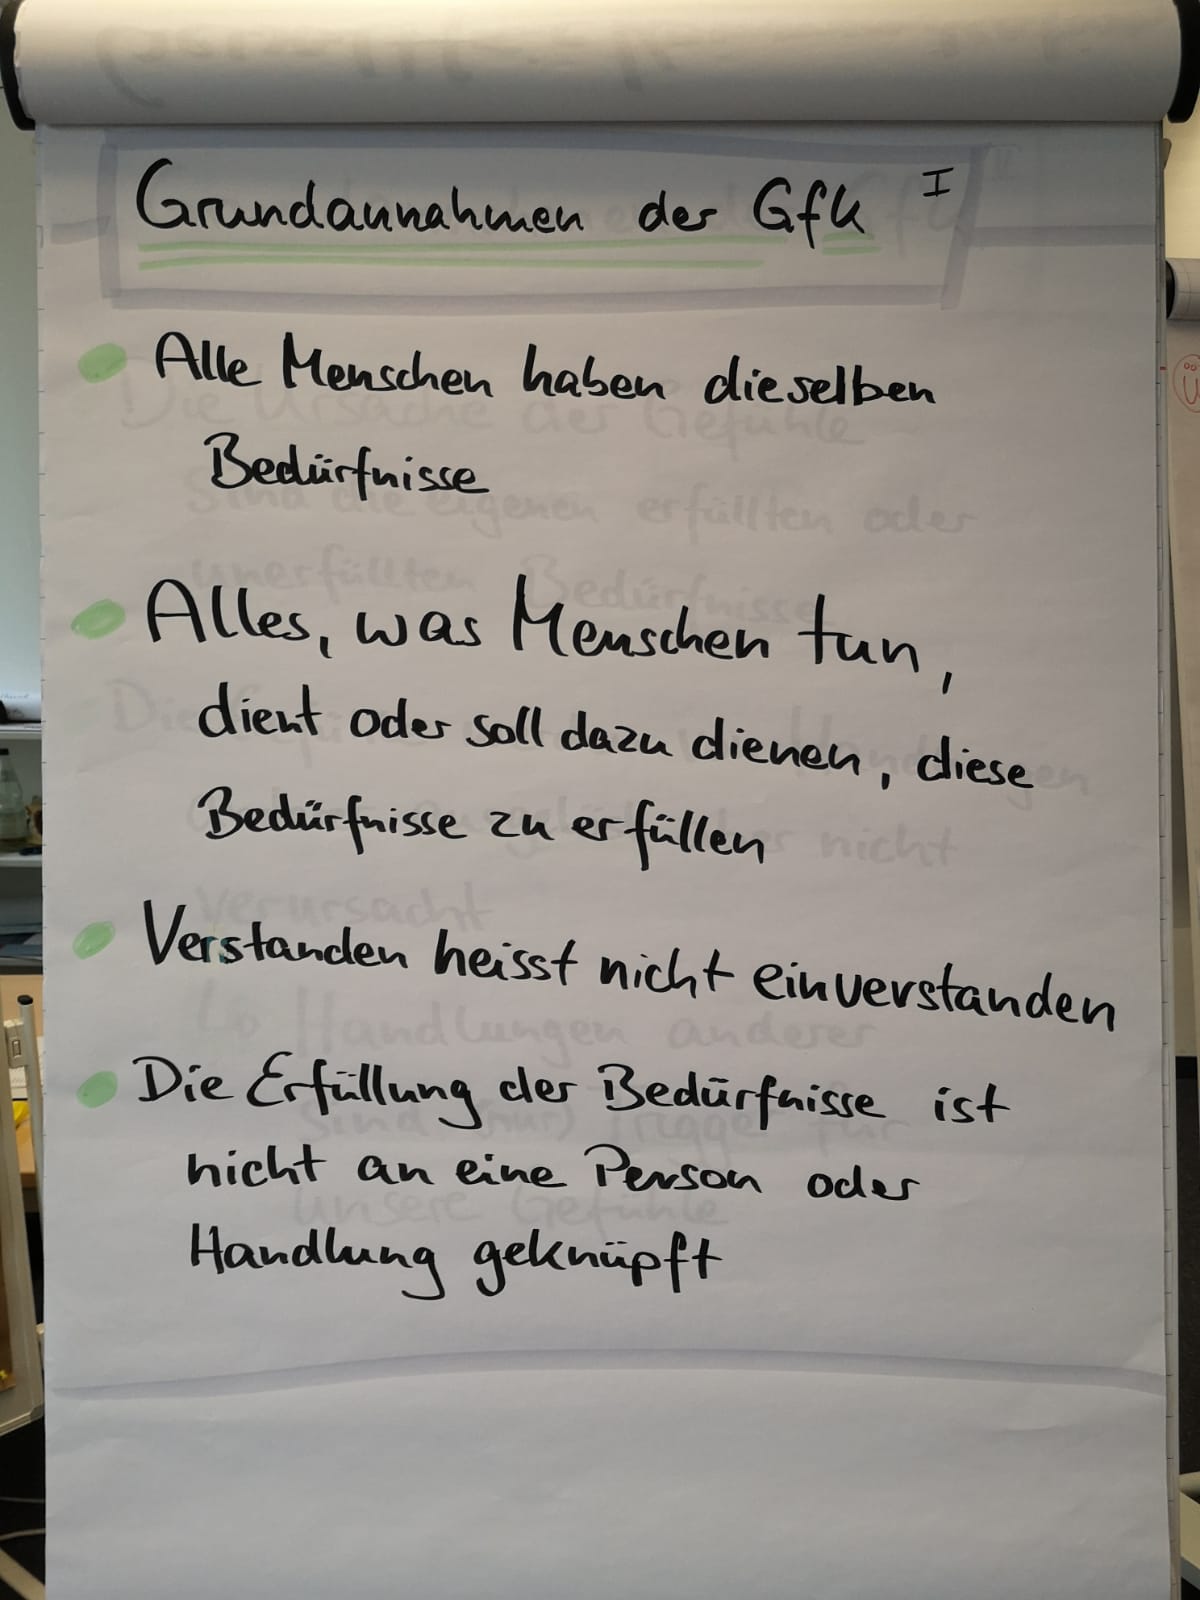 Grundannahmen der GfK I
Alle Menschen haben dieselben
Bedürfnisse
Alles, was Menschen tun,
dient oder soll dazu dienen, diese
Bedürfnisse zu erfüllen
Verstanden heisst nicht einverstanden
Die Erfüllung der Bedürfnisse ist
nicht an eine Person oder
Handlung geknüpft